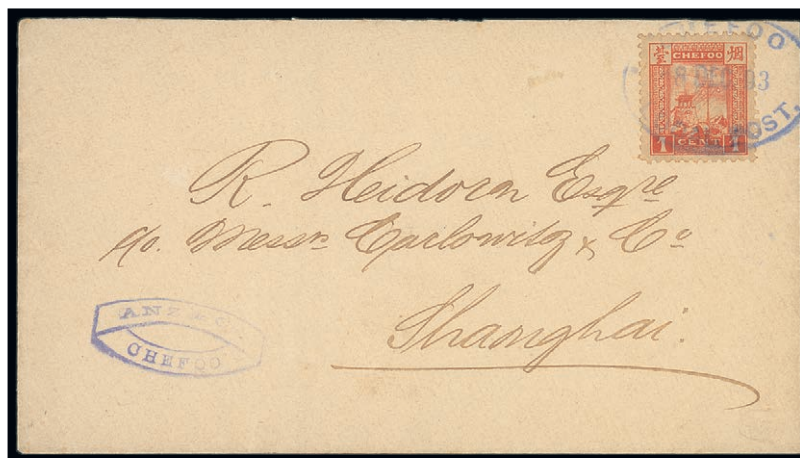 CHEFOO
8 DEC 93
LOCAL POST.
烟臺
CHEFOO
1 CENT 1
R. Heidorn Esqre
c/o. Messrs Carlowitz & Co
Shanghai.
ANZ & CO.
CHEFOO